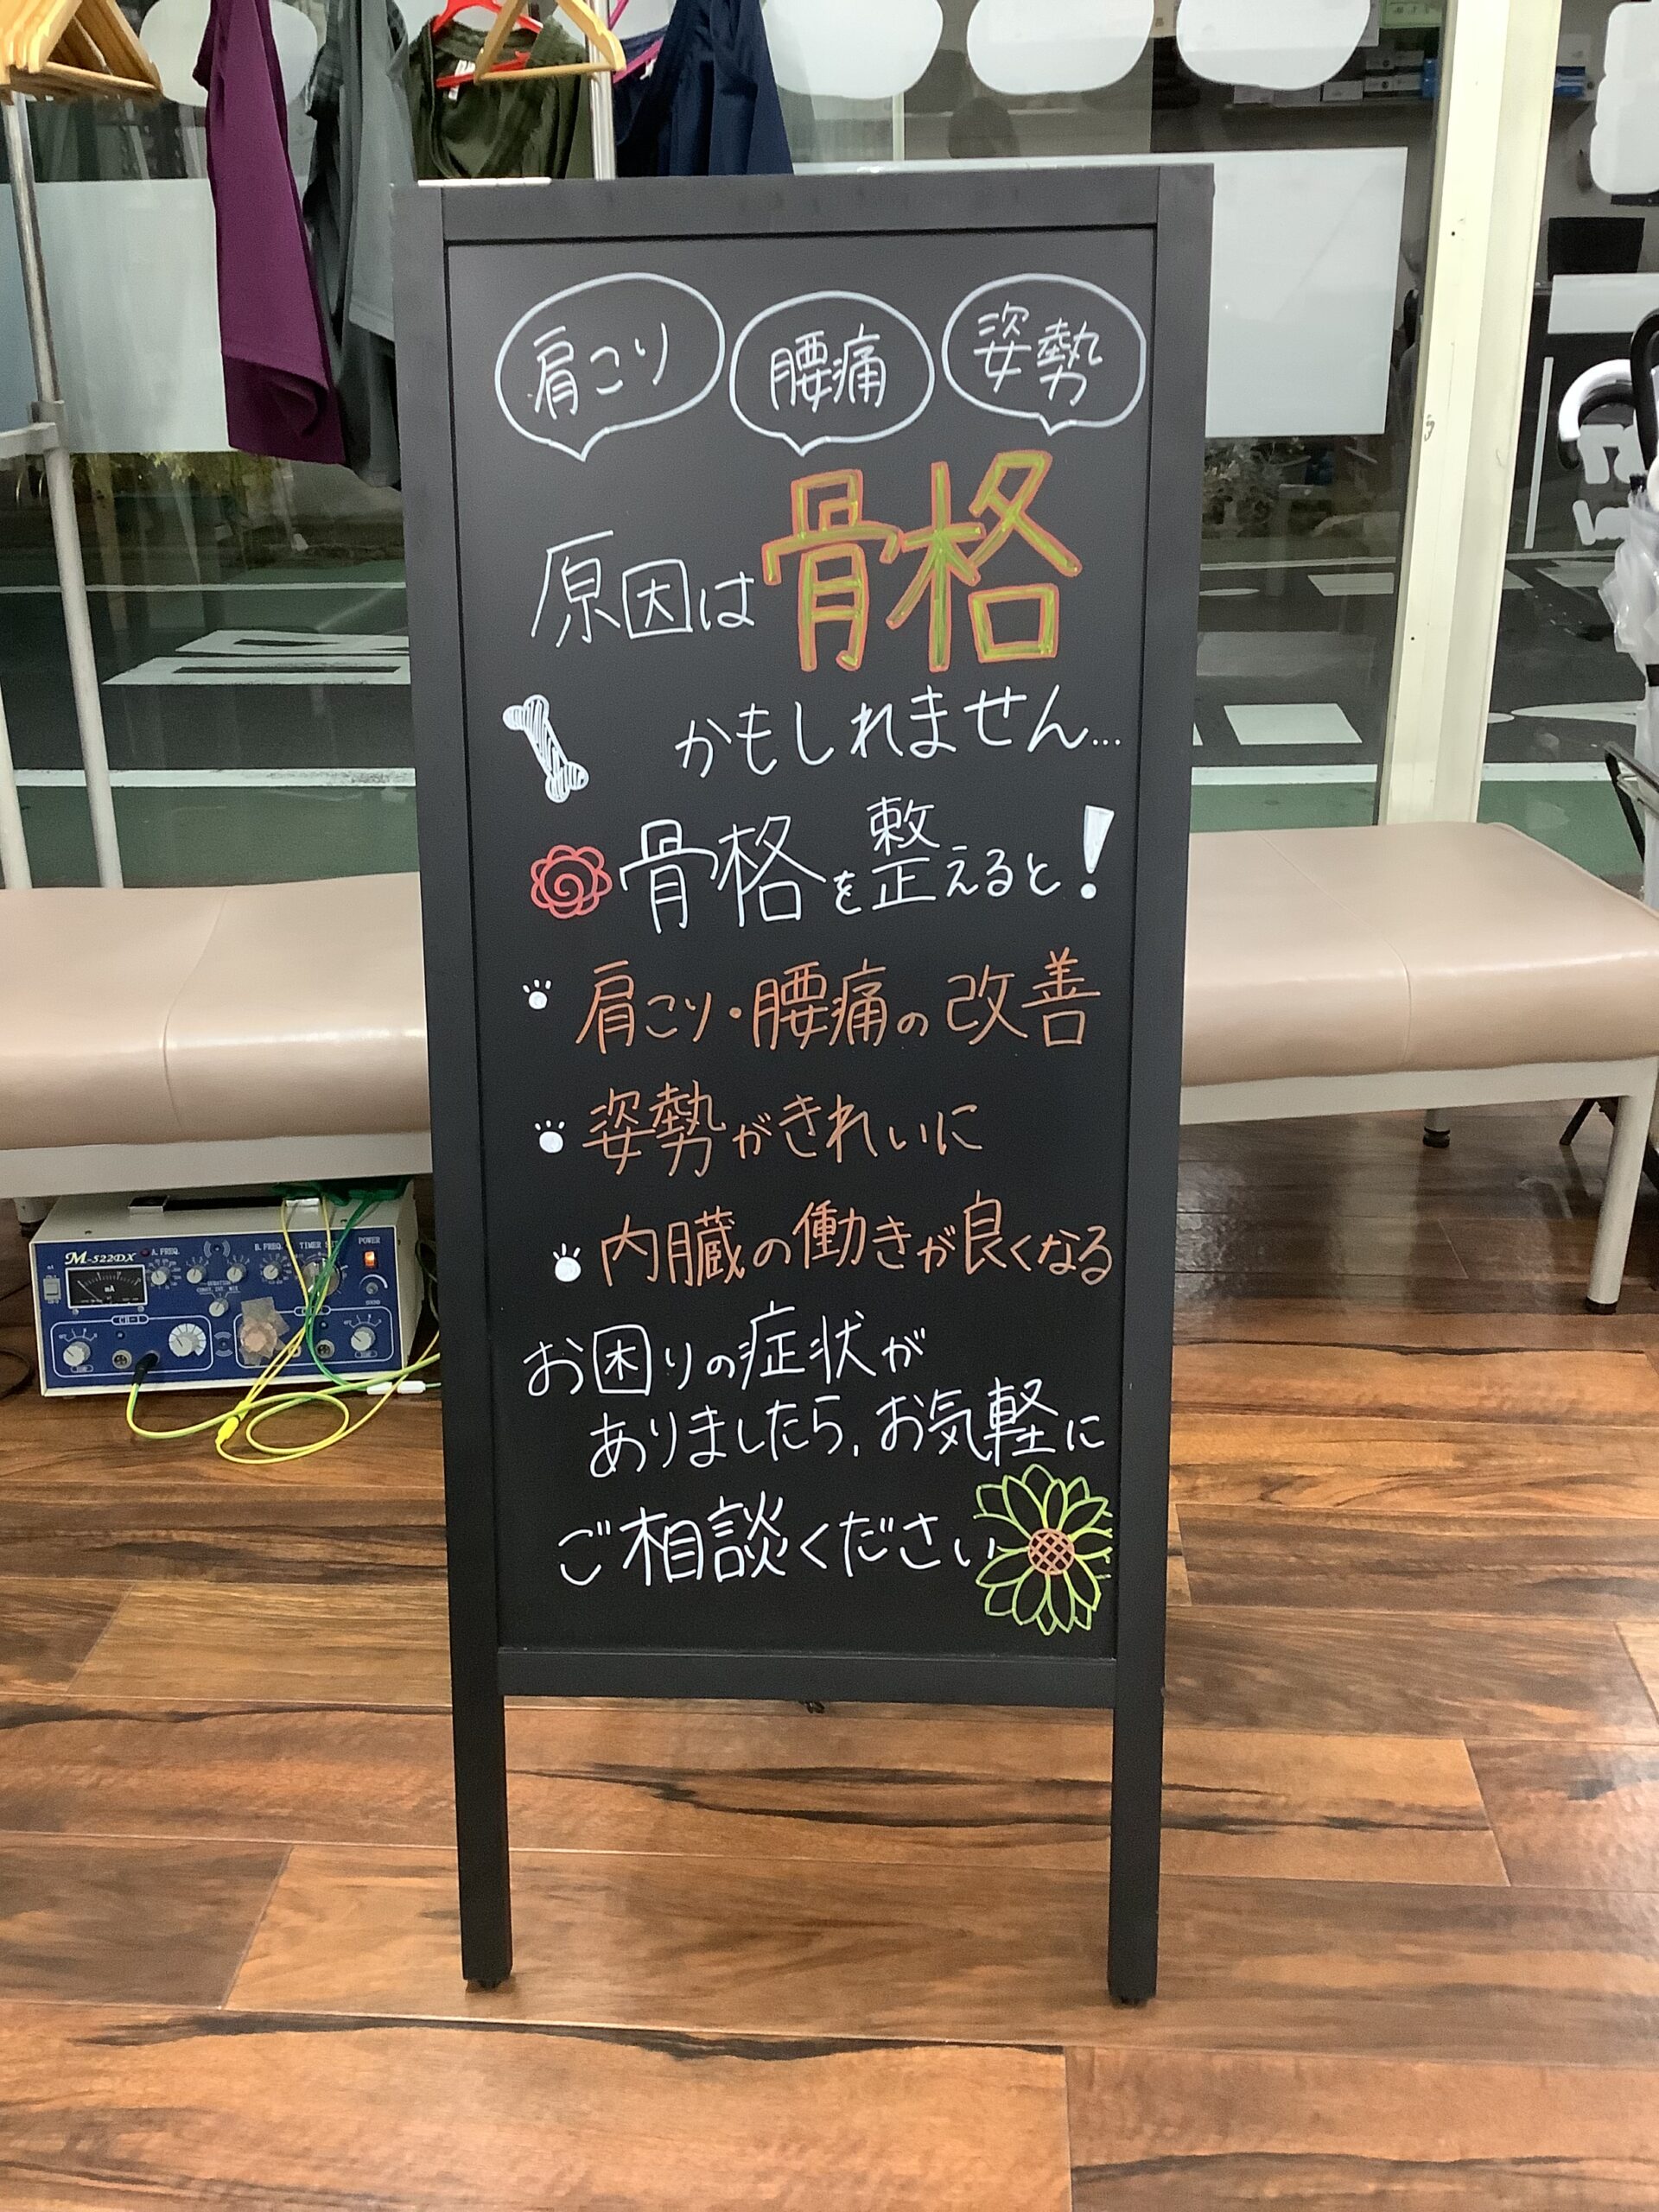 肩こり
腰痛
姿勢
原因は骨格
かもしれません...
骨格を整えると!
肩こり・腰痛の改善
姿勢がきれいに
内臓の働きが良くなる
お困りの症状が
ありましたら、お気軽に
ご相談ください
M-522DX
A.FREQ.
B.FREQ.
POWER
CH-1